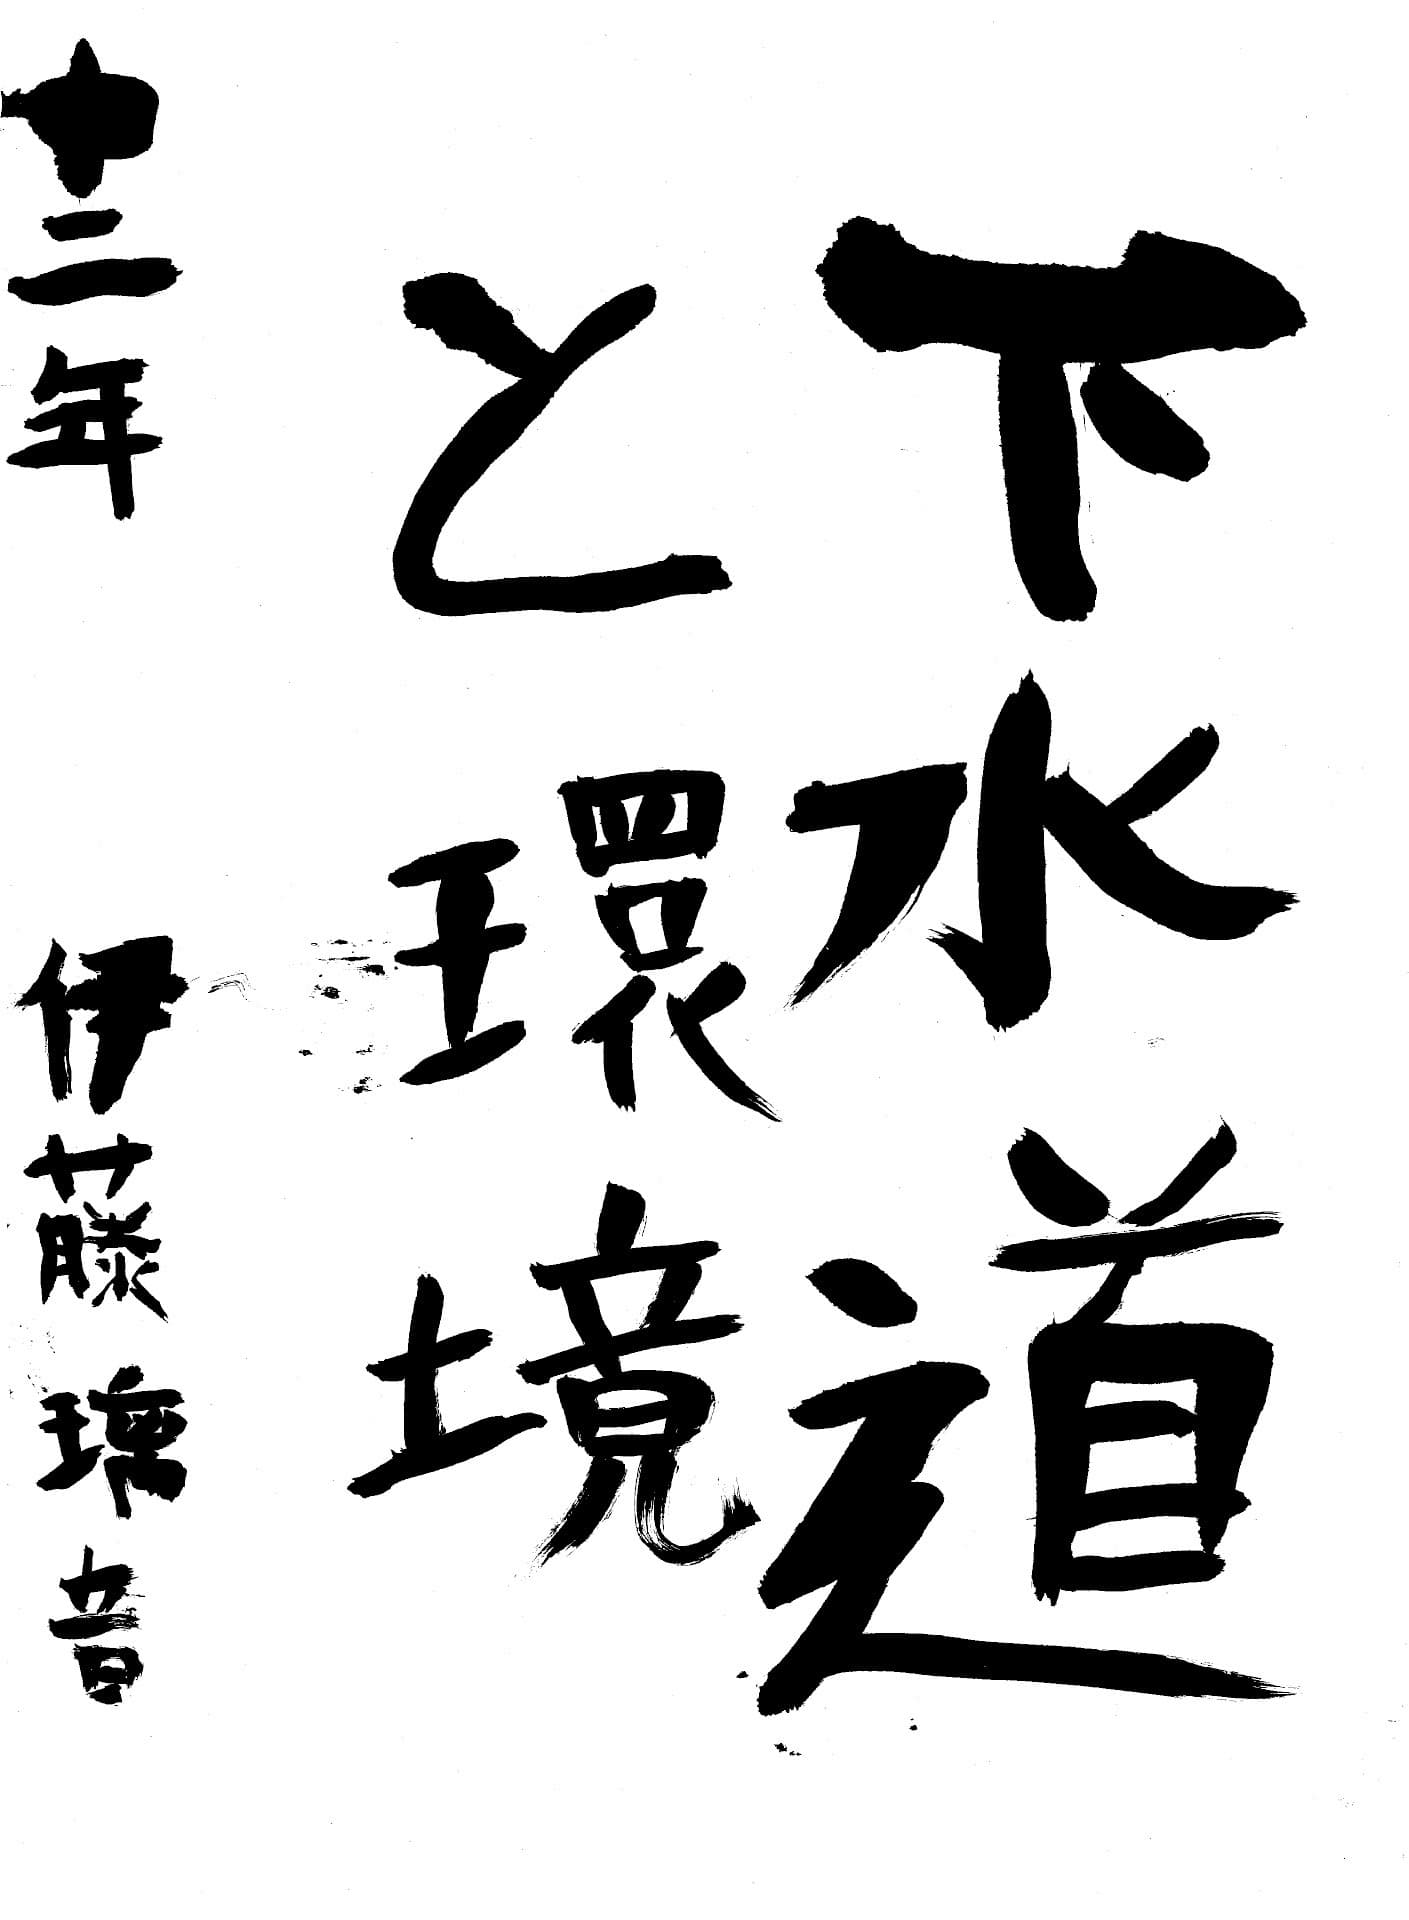 下水道
と環境
中二年 伊藤璃音